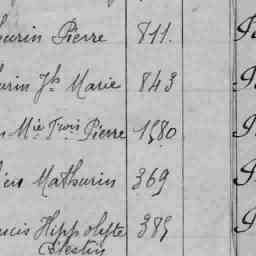 urin Pierre 811.
urin Jh Marie 843
n Mie Fois Pierre 1580
ien Mathurin 369
ncis Hippolyte 389
Célestin